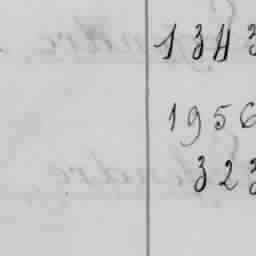 1343
1956
323